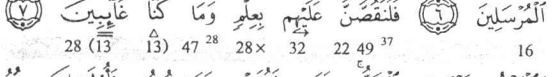 ٱلْمُرْسَلِينَ ٦ فَلَنَقُصَّنَّ عَلَيْهِم بِعِلْمٍ وَمَا كُنَّا غَآئِبِينَ ٧
28 (13 13) 47 28 28× 32 22 49 37 16